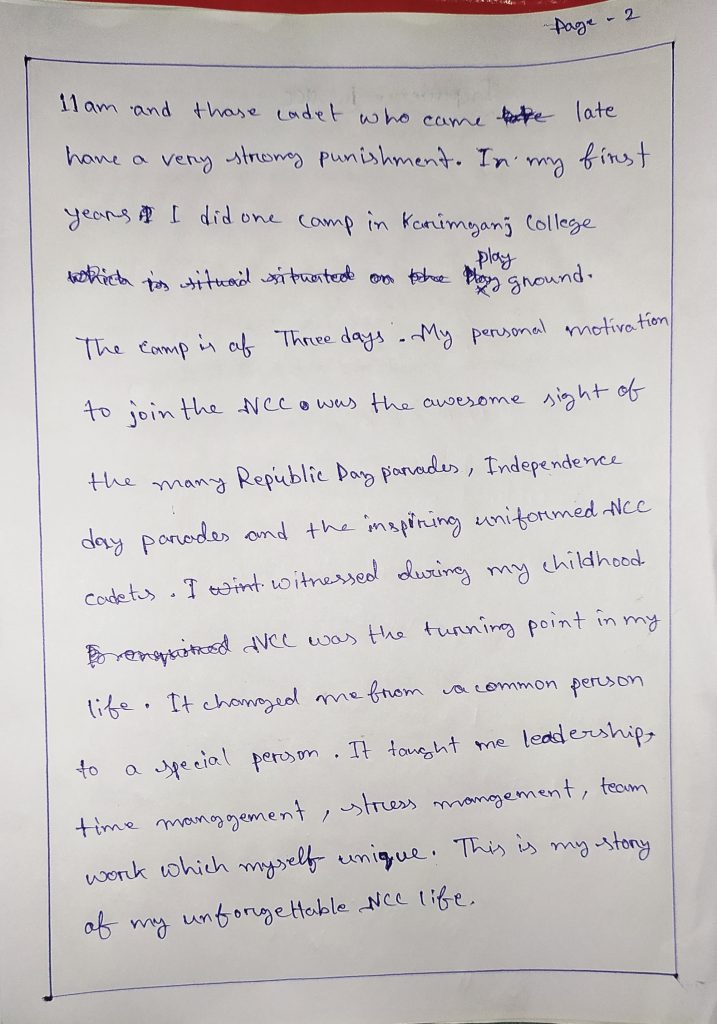 Page - 2
11am and those cadet who came late
have a very strong punishment. In my first
years I did one camp in Karimganj College
play ground.
The camp is of Three days. My personal motivation
to join the NCC was the awesome sight of
the many Republic Day parades, Independence
day parades and the inspiring uniformed NCC
cadets. I witnessed during my childhood
NCC was the turning point in my
life. It changed me from a common person
to a special person. It taught me leadership,
time manggement, stress mangement, team
work which myself unique. This is my story
of my unforgettable NCC life.